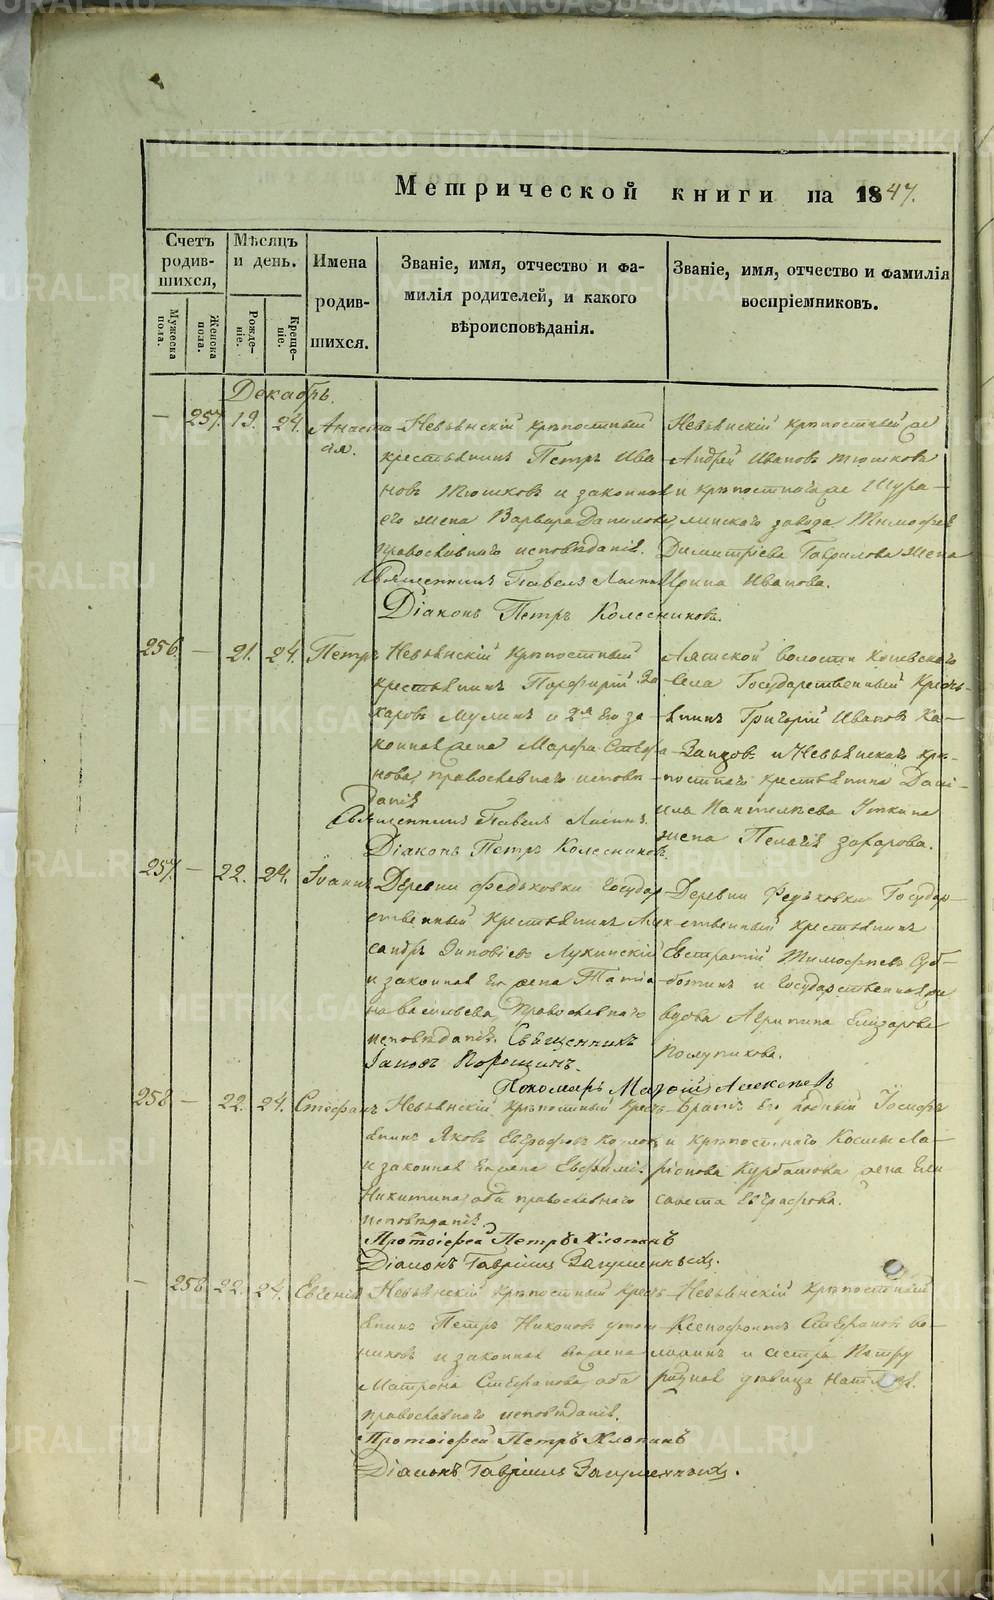 METRIKI.GASO-URAL.RU
Метрической книги на 1847.
Счетъ родив-шихся,
Мужеска пола.
Женска пола.
Мѣсяцъ и день.
Рожде-ніе.
Креще-ніе.
Имена родив-шихся.
Званіе, имя, отчество и фа-
милія родителей, и какого
вѣроисповѣданія.
Званіе, имя, отчество и фамилія
воспріемниковъ.
Декабрь.
— 257. 19. 24. Анаста
сія.
Невьянскій крѣпостный
крестьянинъ Петръ Ива
новъ Тюшковъ и законная
его жена Варвара Данилова
православнаго исповѣданія.
Священникъ Павелъ
Діаконъ Петръ Колесниковъ.
Невьянскій крѣпостный
Андрей Ивановъ Тюшковъ
и крѣпостнаго Шура-
линского завода Тимофея
Димитріева Гаврилова жена
Ирина Иванова.
256. — 21. 24. Петръ
Невьянскій крѣпостный
крестьянинъ Порфирій За
харовъ Мулинъ и 2я его за
конная жена Марфа Стефа
нова православнаго исповѣ
данія
Священникъ Павелъ
Діаконъ Петръ Колесниковъ.
Аятской волости
села Государственный Кресть-
янинъ Григорій Ивановъ Ка-
занцовъ и Невьянскаго крѣ-
постнаго крестьянина Дані-
ила Пантелеева Уткина
жена Пелагія Захарова.
257. — 22. 24. Іоаннъ
Деревни Федьковки Государ
ственный крестьянинъ Алек
сандръ Зиновіевъ Лукинскій
и законная его жена Татіа
на Васильева Православнаго
исповѣданія. Священникъ
Іаковъ Порошинъ.
Пономарь Алексѣевъ
Деревни Федьковки Государ-
ственный крестьянинъ
Евстратій Тимофеевъ Суб-
ботинъ и Государственная
вдова Агрипина Елизарова
258 — 22. 24. Стефанъ
Невьянскій крѣпостный кресть
янинъ Яковъ Евграфовъ Козловъ
и законная его жена Евфимі.
Никитина, оба православнаго
исповѣданія.
Протоіерей Петръ Хлопинъ
Діаконъ Гавріилъ Загуменныхъ.
Братъ его родный Іосифъ
и крѣпостнаго Космы Ла-
ріонова Курбатова жена Ели
савета Евграфова.
— 258 22. 24. Евгенія
Невьянскій крѣпостный кресть
янинъ Петръ Никоновъ
и законная его жена
Матрона Стефанова, оба
православнаго исповѣданія.
Протоіерей Петръ Хлопинъ
Діаконъ Гавріилъ Загуменныхъ.
Невьянскій крѣпостный
Ксенофонтъ Стефановъ
и сестра Петру
родная дѣвица